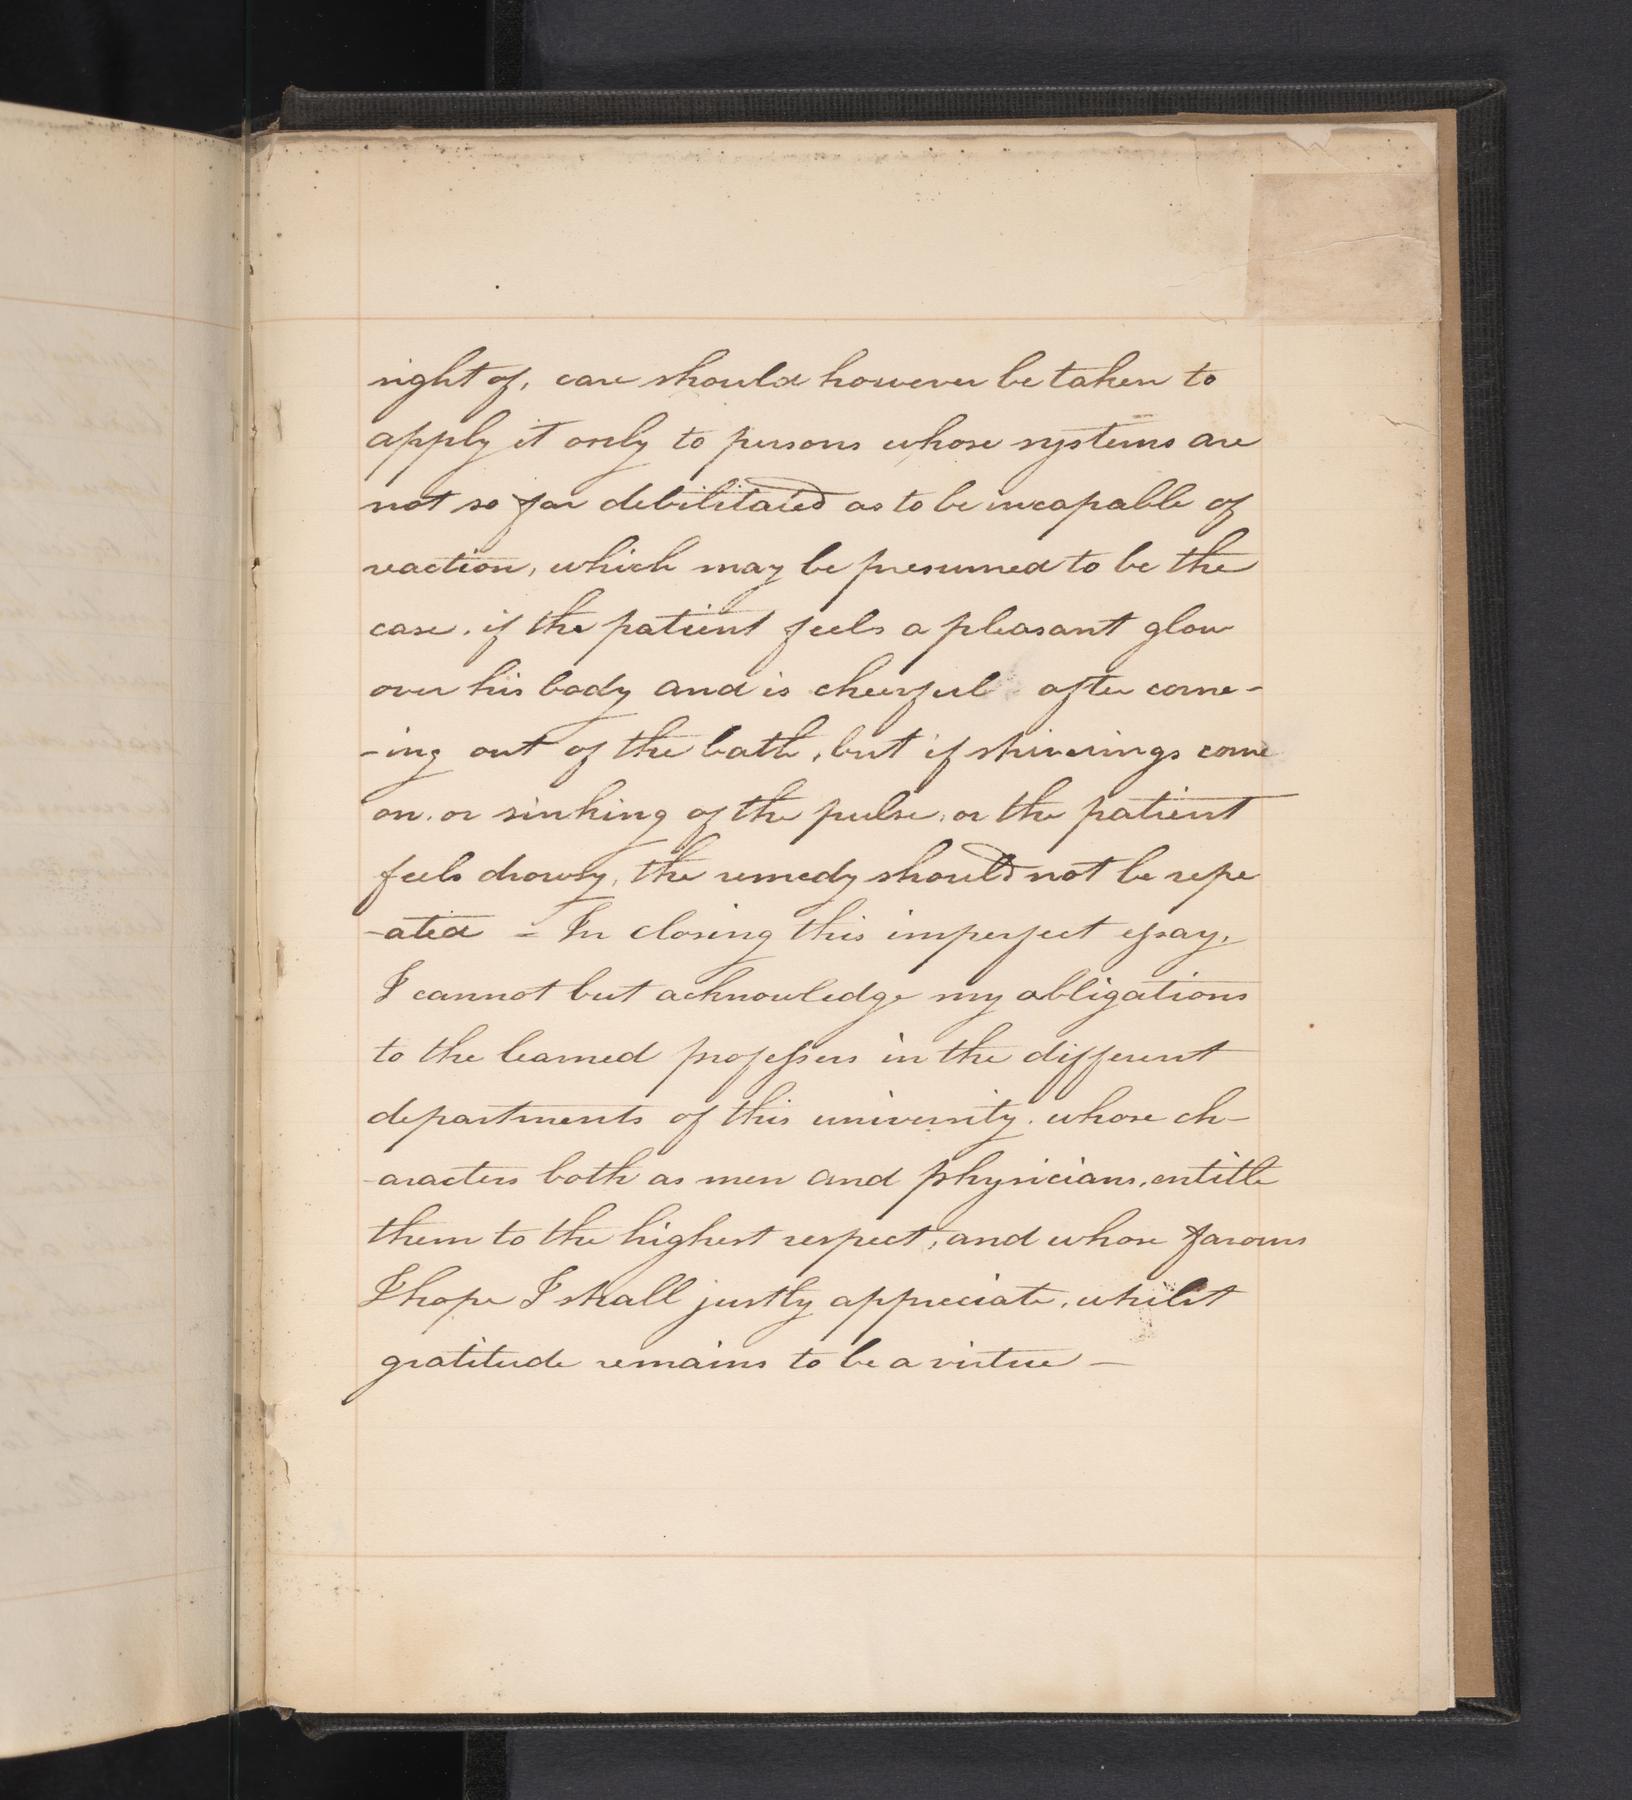 sight of, care should however be taken to
apply it only to persons whose systems are
not so far debilitated as to be incapable of
reaction, which may be presumed to be the
case, if the patient feels a pleasant glow
over his body and is cheerful after come-
-ing out of the bath, but if shiverings come
on, or sinking of the pulse, or the patient
feels drowsy, the remedy should not be repe
-ated = In closing this imperfect essay,
I cannot but acknowledge my obligations
to the learned professers in the different
departments of this university, whose ch-
-aracters both as men and physicians, entitle
them to the highest respect, and whose favours
I hope I shall justly appreciate, whilst
gratitude remains to be a virtue —